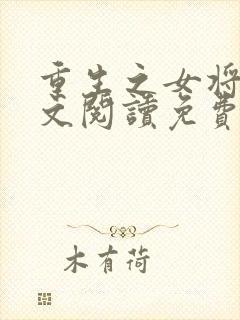 重生之女将
文閱讀免費
木有荷